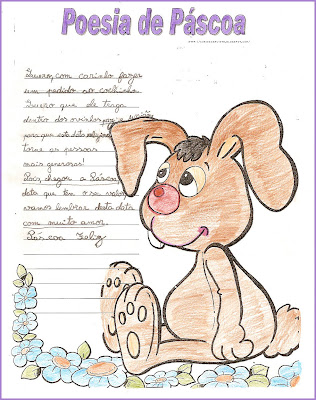 Poesia de Páscoa
Quero, com carinho fazer
um pedido ao coelhinho
Quero que ele traga
dentro dos ovinhos
para que esta data
torne as pessoas
mais generosas!
Pois, chegou a Páscoa
data que tem o seu valor
vamos lembrar desta data
com muito amor.
Páscoa Feliz